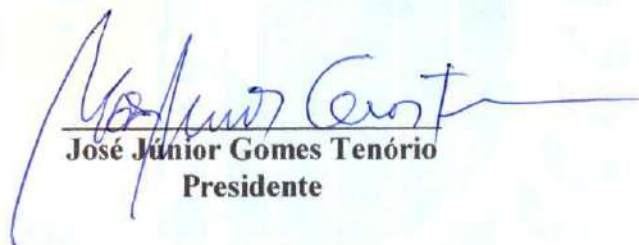 José Júnior Gomes Tenório
Presidente